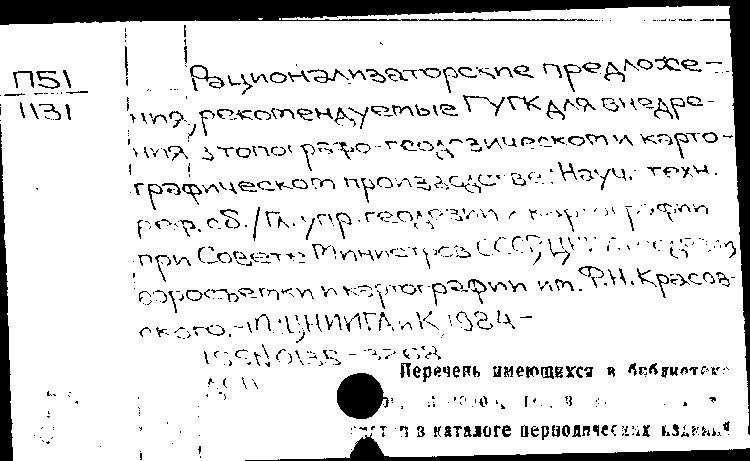 П51
1131
Рационализаторские предложе-
ния, рекомендуемые ГУГК для внедре-
ния в топографо-геодезическом и карто-
графическом производстве: Науч. техн.
реф. сб. / Гл. упр. геодезии и картографии
при Совете Министров СССР, геодезии,
аэросъемки и картографии им. Ф.Н. Красов-
ского. - М.: ЦНИИГАиК, 1984 -
ISSN 0135-3268
Перечень имеющихся в библиотеке
в каталоге периодических изданий